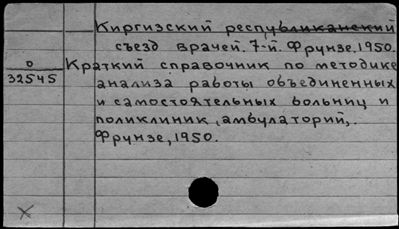 Киргизский республиканский
съезд врачей. 7-й. Фрунзе, 1950.
О
32545
Краткий справочник по методике
анализа работы объединенных
и самостоятельных больниц и
поликлиник, амбулаторий,.
Фрунзе, 1950.